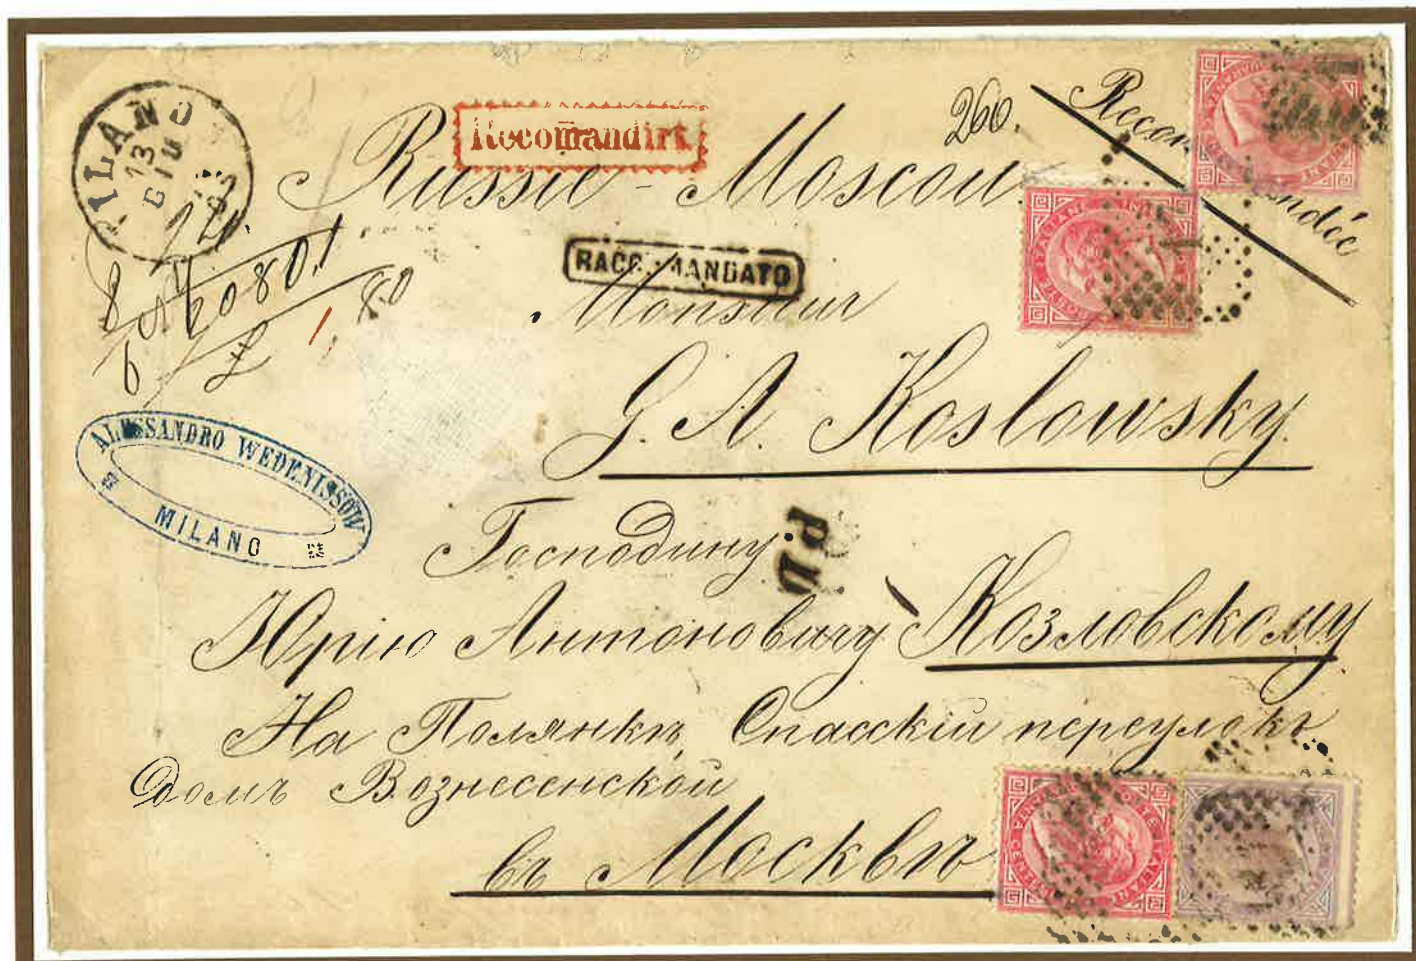 MILANO
13
GIU
Recomandirt
260.
Recommandée
Russie - Moscou
RACCOMANDATO
Monsieur
80
G. A. Koslowsky.
ALESSANDRO WEDENISSOW
MILANO
Господину
PD
Юрію Антоновичу Козловскому
На Полянкѣ, Спасскій переулокъ
Домъ Вознесенской
въ Москвѣ